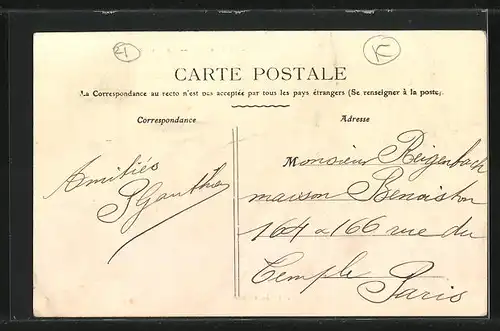 21
K
CARTE POSTALE
La Correspondance au recto n'est pas acceptée par tous les pays étrangers (Se renseigner à la poste)
Correspondance
Adresse
Amitiés
PGauthier
Monsieur Reigenbach
maison Benoiston
164 a 166 rue du
Temple Paris